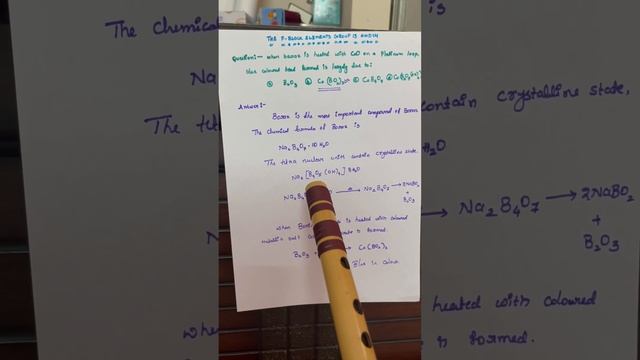 THE P-BLOCK ELEMENTS GROUP 13
Question:- When borax is heated with CoO on a Platinum loop,
blue coloured bead formed is largely due to:
ⓐ B2O3 ⓑ Co(BO2)2 ⓒ CoB4O7
Answer:-
Borax is the most important compound of Boron.
The chemical formula of Borax is
Na2B4O7·10H2O
The tetra nuclear unit contain crystalline state,
Na2[B4O5(OH)4]8H2O
Na2B4 → Na2B4O7 → 2NaBO2
+
B2O3
When is heated with coloured
is formed.
B2O3 + → Co(BO2)2
Blue in colour
The Chemical
Na
The tetra
contain crystalline state,
H2O
Na → Na2B4O7 → 2NaBO2
+
B2O3
whe heated with coloured
is formed.